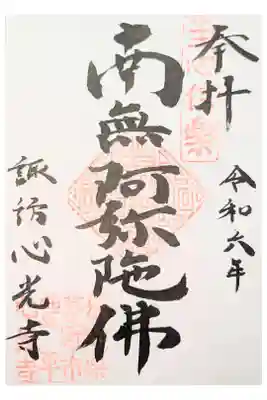 奉拝
令和六年
南無阿弥陀佛
諏訪心光寺